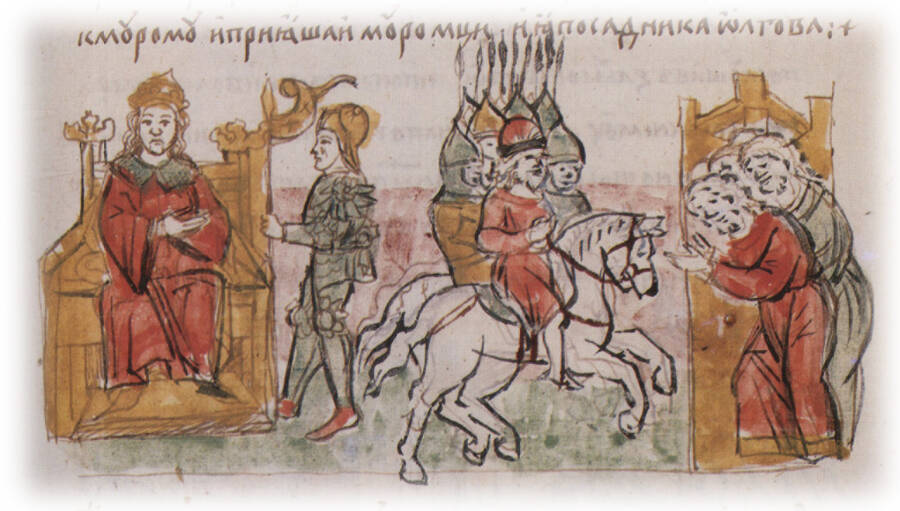 кмꙋромꙋ ипрнꙗшаи мꙋромци иѩпосадника ѡлгова:+